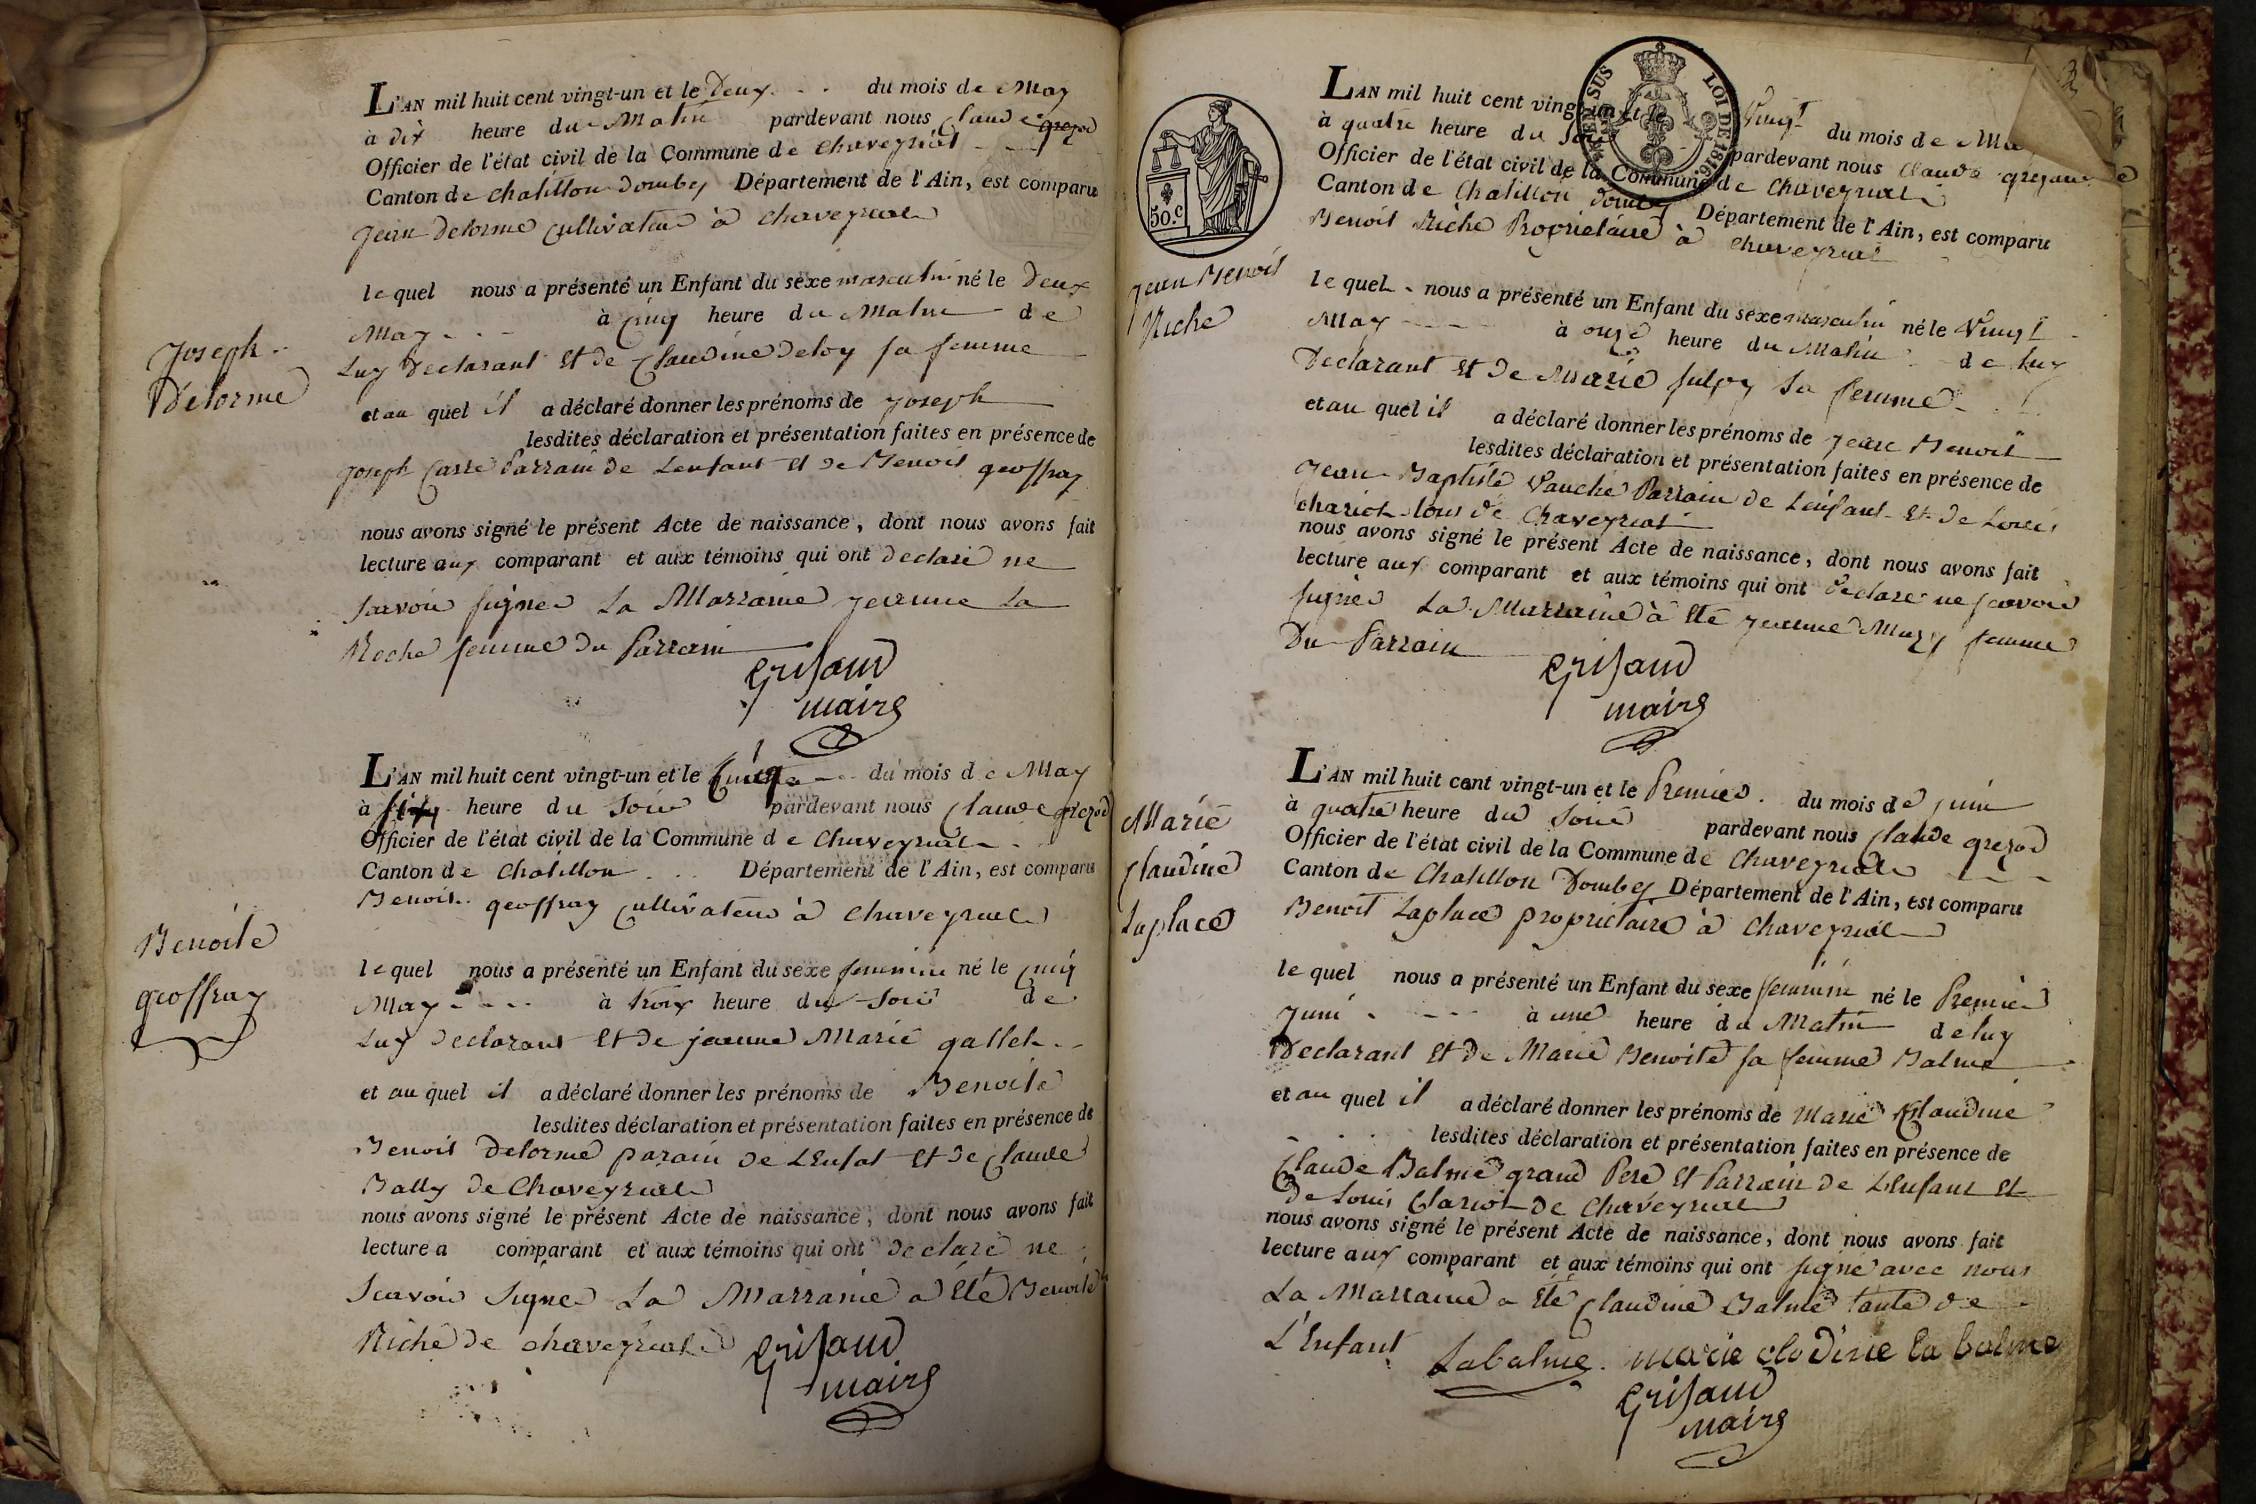 L'AN mil huit cent vingt-un et le Deux du mois de May
à dix heure du Matin pardevant nous Claude
Officier de l'état civil de la Commune de Chaveyriat
Canton de Chatillon Dombey Département de l'Ain, est comparu
Jean Delorme Cultivateur à Chaveyriat
lequel nous a présenté un Enfant du sexe masculin né le Deux
May à Cinq heure du Matin de
Luy Declarant et de Claudine Deloy sa femme
et au quel il a déclaré donner les prénoms de Joseph
lesdites déclaration et présentation faites en présence de
Joseph Carre Parrain de Lenfant et de Benoit geoffray
nous avons signé le présent Acte de naissance, dont nous avons fait
lecture aux comparant et aux témoins qui ont declaré ne
Savoir signer La Marraine jeanne La
Roche femme du Parrain
Grisaud
maire
Joseph
Delorme
L'AN mil huit cent vingt-un et le Cinq du mois de May
à six heure du Soir pardevant nous Claude
Officier de l'état civil de la Commune de Chaveyriat
Canton de Chatillon Département de l'Ain, est comparu
Benoit geoffray Cultivateur à Chaveyriat
lequel nous a présenté un Enfant du sexe feminin né le Cinq
May à troix heure du Soir de
Luy declarant et de jeanne Marie gallet
et au quel il a déclaré donner les prénoms de Benoite
lesdites déclaration et présentation faites en présence de
Benoit Delorme parain de LEnfat et de Claude
Bally de Chaveyriat
nous avons signé le présent Acte de naissance, dont nous avons fait
lecture a comparant et aux témoins qui ont declaré ne
Scavoir Signer La Marraine a Eté Benoite
Riche de chaveyriat
Grisaud
maire
Benoite
geoffray
50.c
TIMBRE SUS LOI DE 1816
L'AN mil huit cent vingt-un et le Vingt du mois de
à quatre heure du Soir pardevant nous Claude
Officier de l'état civil de la Commune de Chaveyriat
Canton de Chatillon Dombey Département de l'Ain, est comparu
Benoit Riche Proprietaire à Chaveyriat
lequel nous a présenté un Enfant du sexe masculin né le Vingt
May à onze heure du Matin de Luy
Declarant et de Marie Sulpy Sa femme
et au quel il a déclaré donner les prénoms de Jean Benoit
lesdites déclaration et présentation faites en présence de
Jean Baptiste Vauche Parrain de Lenfant et de Louis
chariot tous de Chaveyriat
nous avons signé le présent Acte de naissance, dont nous avons fait
lecture aux comparant et aux témoins qui ont Declaré ne scavoir
signer La Marraine à Eté jeanne Mary femme
Du Parrain
Grisaud
maire
Jean Benoit
Riche
L'AN mil huit cent vingt-un et le Premier du mois de juin
à quatre heure du Soir pardevant nous Claude
Officier de l'état civil de la Commune de Chaveyriat
Canton de Chatillon Dombey Département de l'Ain, est comparu
Benoit Laplace proprietaire à Chaveyriat
lequel nous a présenté un Enfant du sexe feminin né le Premier
Juin à une heure du Matin de luy
Declarant et de Marie Benoite sa femme Balme
et au quel il a déclaré donner les prénoms de Marie Claudine
lesdites déclaration et présentation faites en présence de
Claude Balme grand Pere et Parrain de LEnfant et
de Louis Clariot de Chaveyriat
nous avons signé le présent Acte de naissance, dont nous avons fait
lecture aux comparant et aux témoins qui ont signé avec nous
La Marraine a Eté Claudine Balme tante de
L'Enfant Labalme marie clodine la balme
Grisaud
maire
Marie
Claudine
Laplace